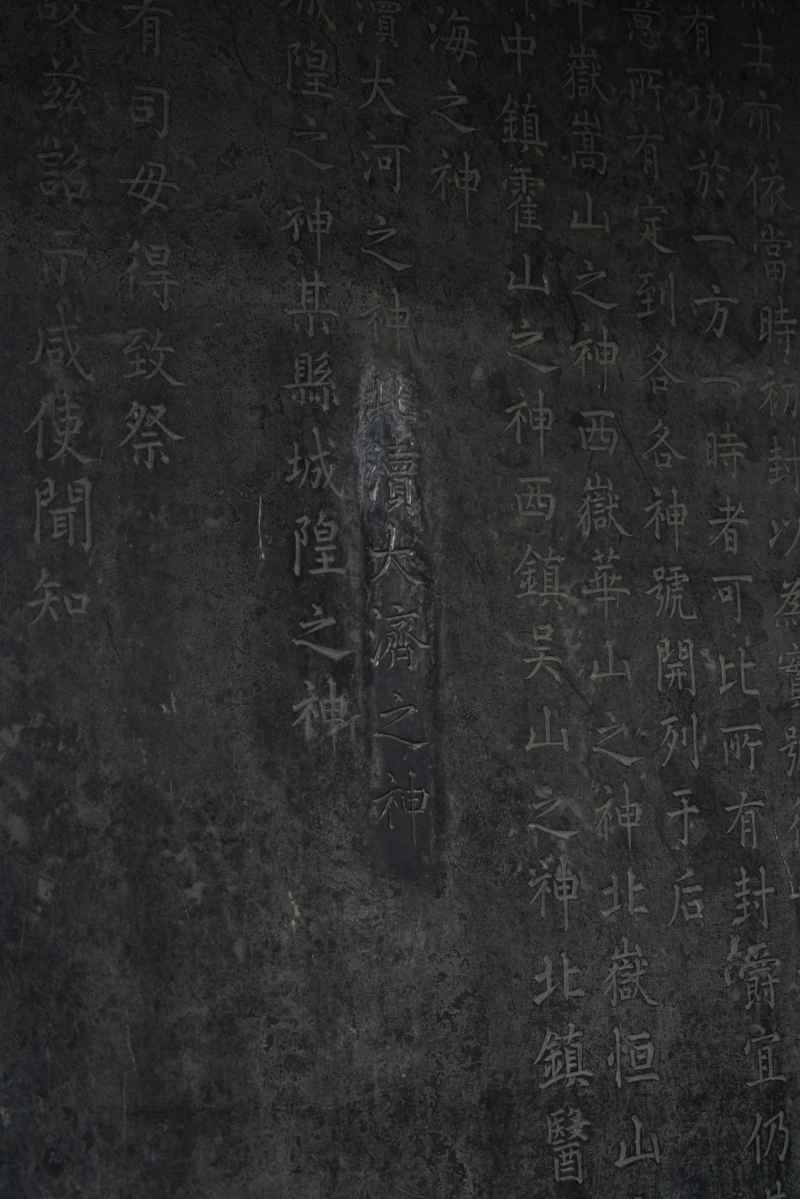 士亦依當時初封以為實號
有功於一方一時者可比所有封爵宜仍
意所有定到各各神號開列于后
中嶽嵩山之神西嶽華山之神北嶽恒山
中鎮霍山之神西鎮吴山之神北鎮醫
海之神
瀆大河之神北瀆大濟之神
城隍之神某縣城隍之神
有司毋得致祭
故兹詔示咸使聞知